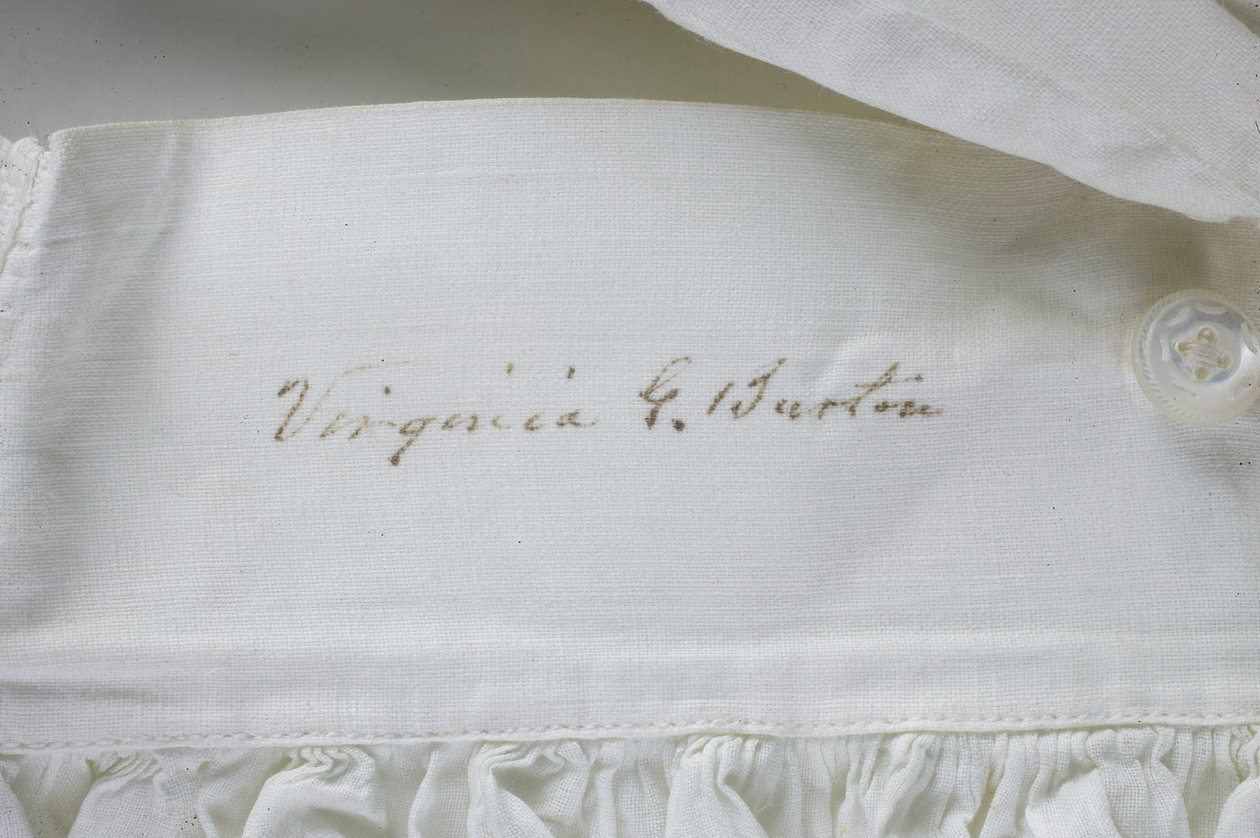 Virginia G. Burton